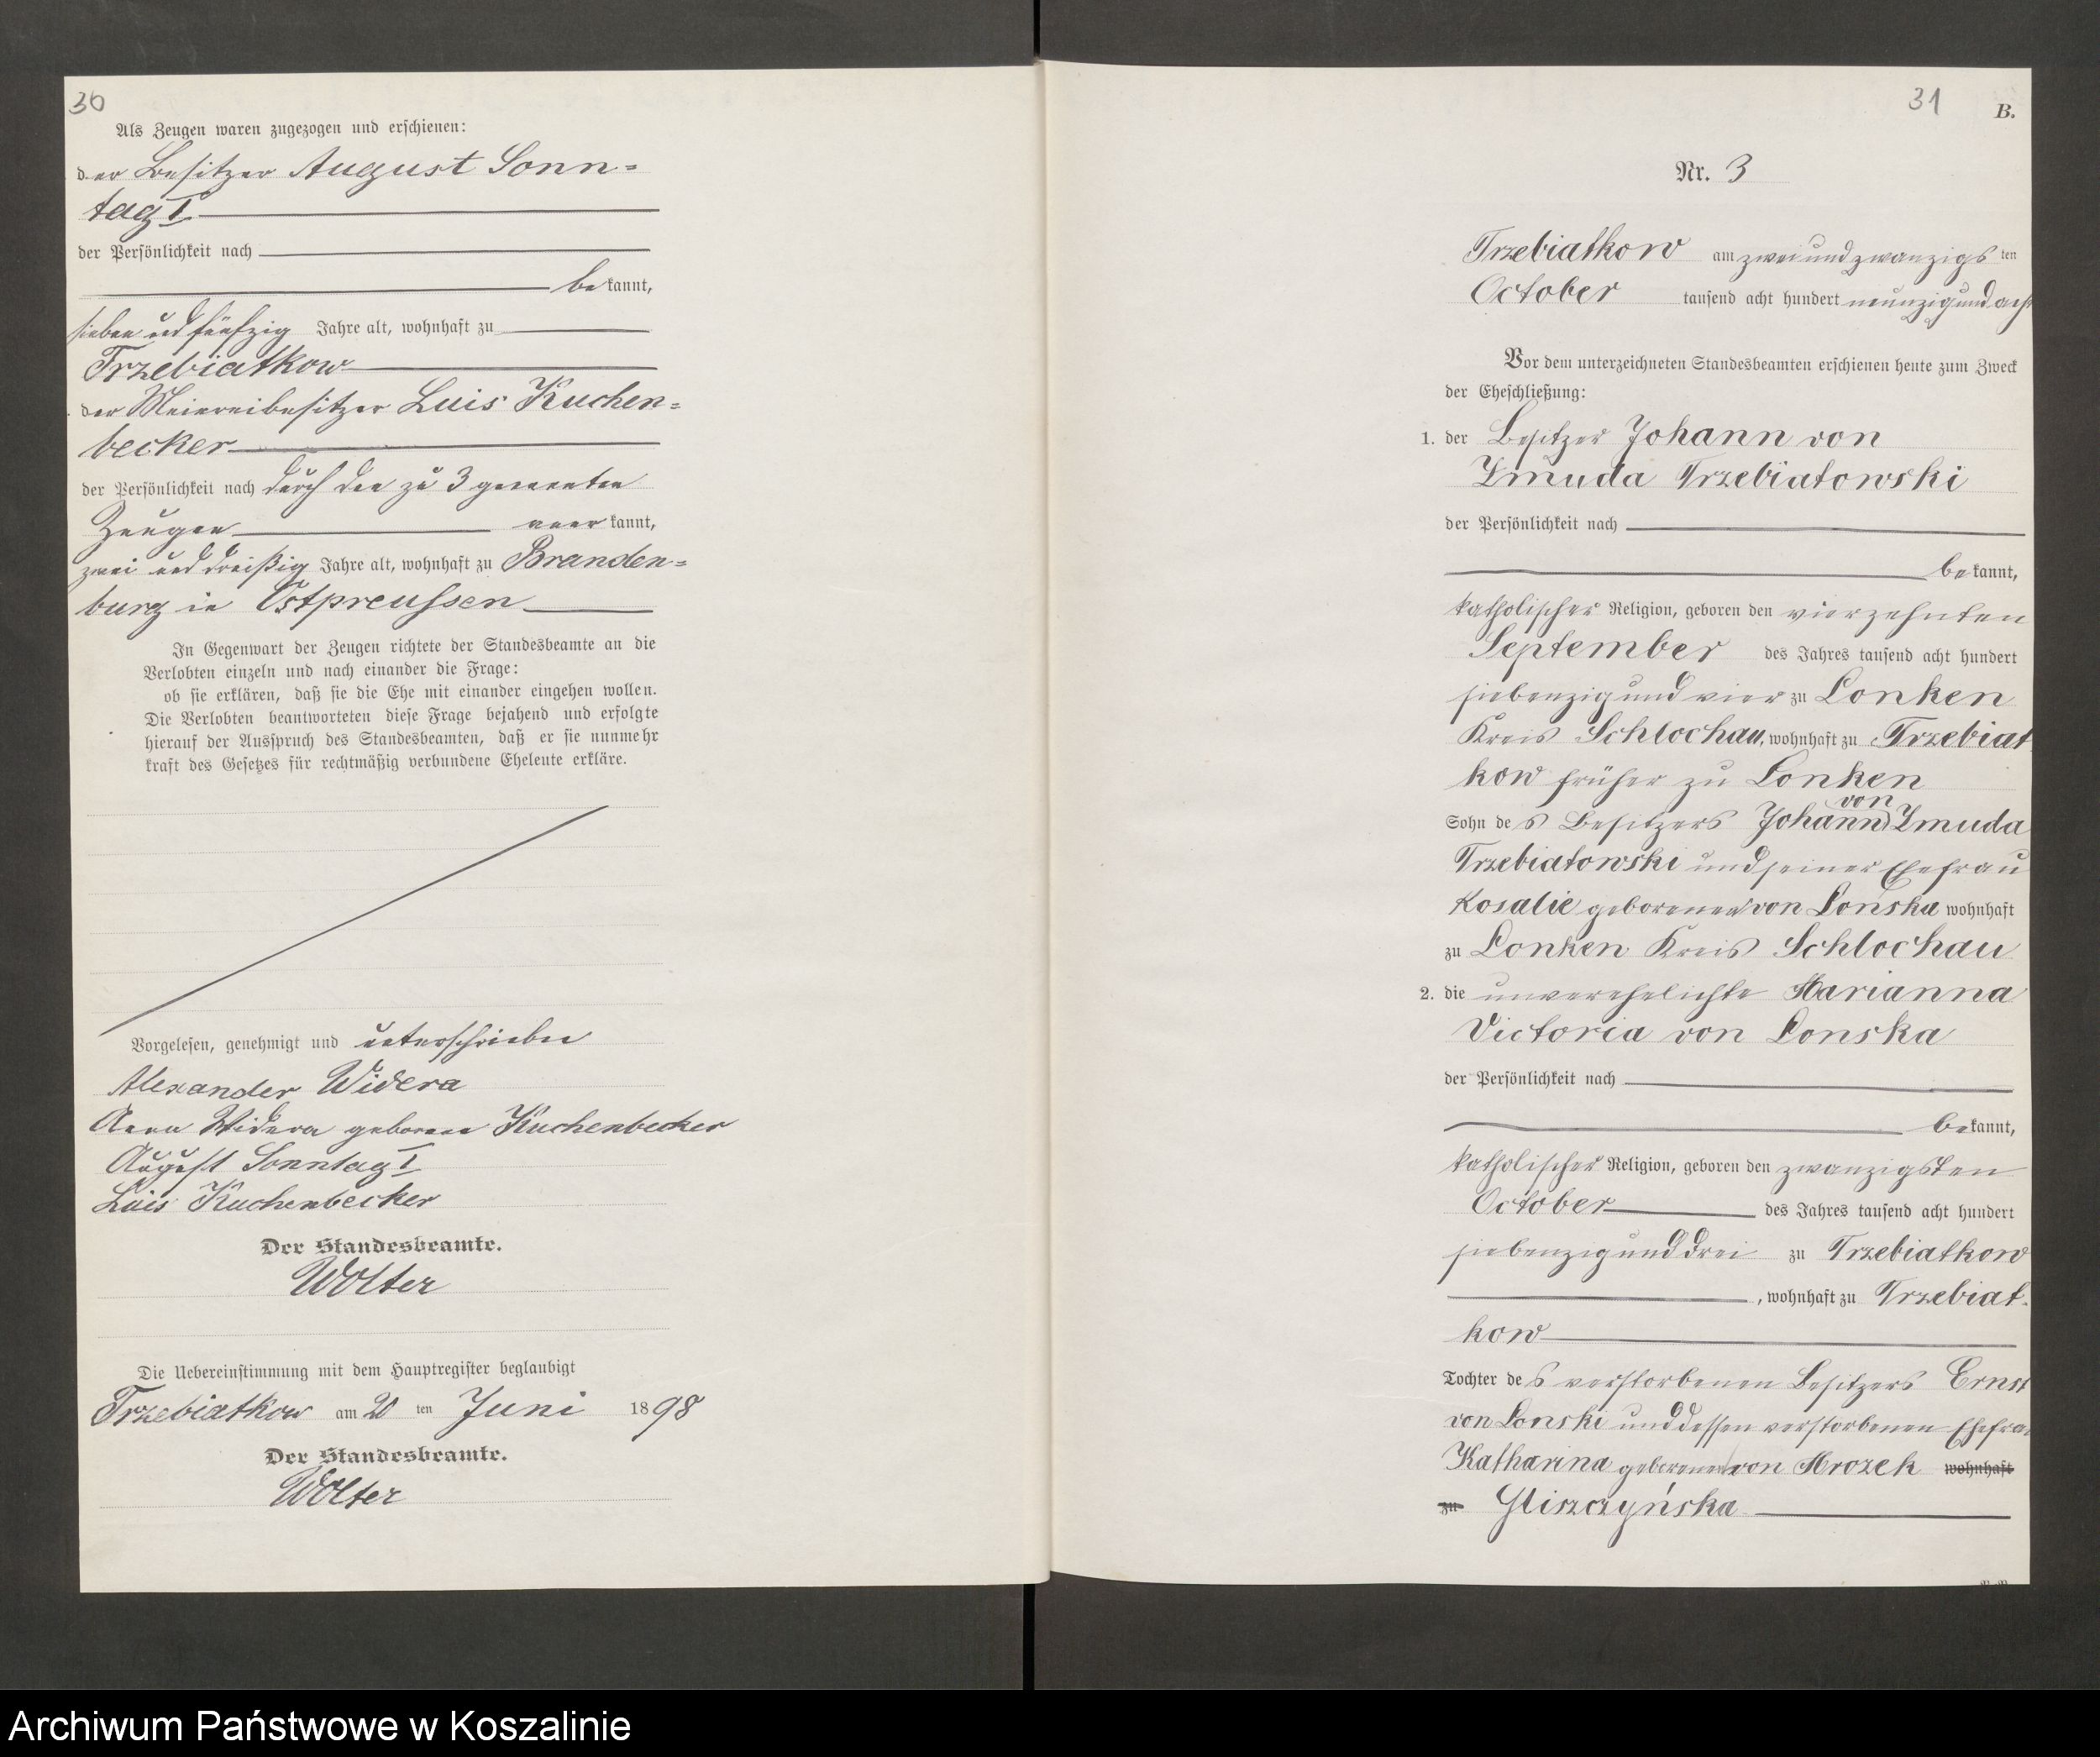 30
Als Zeugen waren zugezogen und erschienen:
der Besitzer August Sonn=
tag I
der Persönlichkeit nach
bekannt,
sieben und fünfzig Jahre alt, wohnhaft zu
Trzebiatkow
der Meiereibesitzer Luis Kuchen=
becker
der Persönlichkeit nach durch den zu 3 genannten
Zeugen anerkannt,
zwei und dreißig Jahre alt, wohnhaft zu Branden=
burg in Ostpreussen
In Gegenwart der Zeugen richtete der Standesbeamte an die
Verlobten einzeln und nach einander die Frage:
ob sie erklären, daß sie die Ehe mit einander eingehen wollen.
Die Verlobten beantworteten diese Frage bejahend und erfolgte
hierauf der Ausspruch des Standesbeamten, daß er sie nunmehr
kraft des Gesetzes für rechtmäßig verbundene Eheleute erkläre.
Vorgelesen, genehmigt und unterschrieben
Alexander Widera
Anna Widera geborene Kuchenbecker
August Sonntag I
Luis Kuchenbecker
Der Standesbeamte.
Wolter
Die Uebereinstimmung mit dem Hauptregister beglaubigt
Trzebiatkow am 20 ten Juni 1898
Der Standesbeamte.
Wolter
31
B.
Nr. 3
Trzebiatkow am zweiundzwanzigsten
October tausend acht hundert neunzig und acht
Vor dem unterzeichneten Standesbeamten erschienen heute zum Zweck
der Eheschließung:
1. der Besitzer Johann von
Zmuda Trzebiatowski
der Persönlichkeit nach
bekannt,
katholischer Religion, geboren den vierzehnten
September des Jahres tausend acht hundert
siebenzig und vier zu Lonken
Kreis Schlochau, wohnhaft zu Trzebiat
kow früher zu Lonken
Sohn des Besitzers Johann von Zmuda
Trzebiatowski und seiner Ehefrau
Rosalie geborenen von Lońska wohnhaft
zu Lonken Kreis Schlochau
2. die unverehelichte Marianna
Victoria von Lonska
der Persönlichkeit nach
bekannt,
katholischer Religion, geboren den zwanzigsten
October des Jahres tausend acht hundert
siebenzig und drei zu Trzebiatkow
, wohnhaft zu Trzebiat-
kow
Tochter des verstorbenen Besitzers Ernst
von Lonski und dessen verstorbenen Ehefrau
Katharina geborenen von Mrozek wohnhaft
zu Gliszczyńska
Archiwum Państwowe w Koszalinie